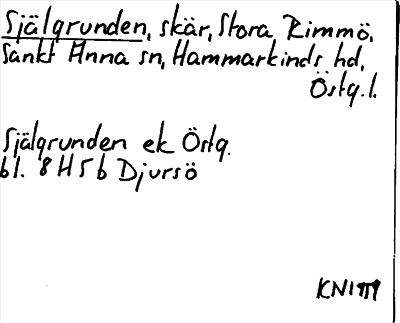 Själgrunden, skär, Stora Rimmö,
Sankt Anna sn, Hammarkinds hd,
Östg.l.
Själgrunden ek Östg.
bl. 8H5b Djursö